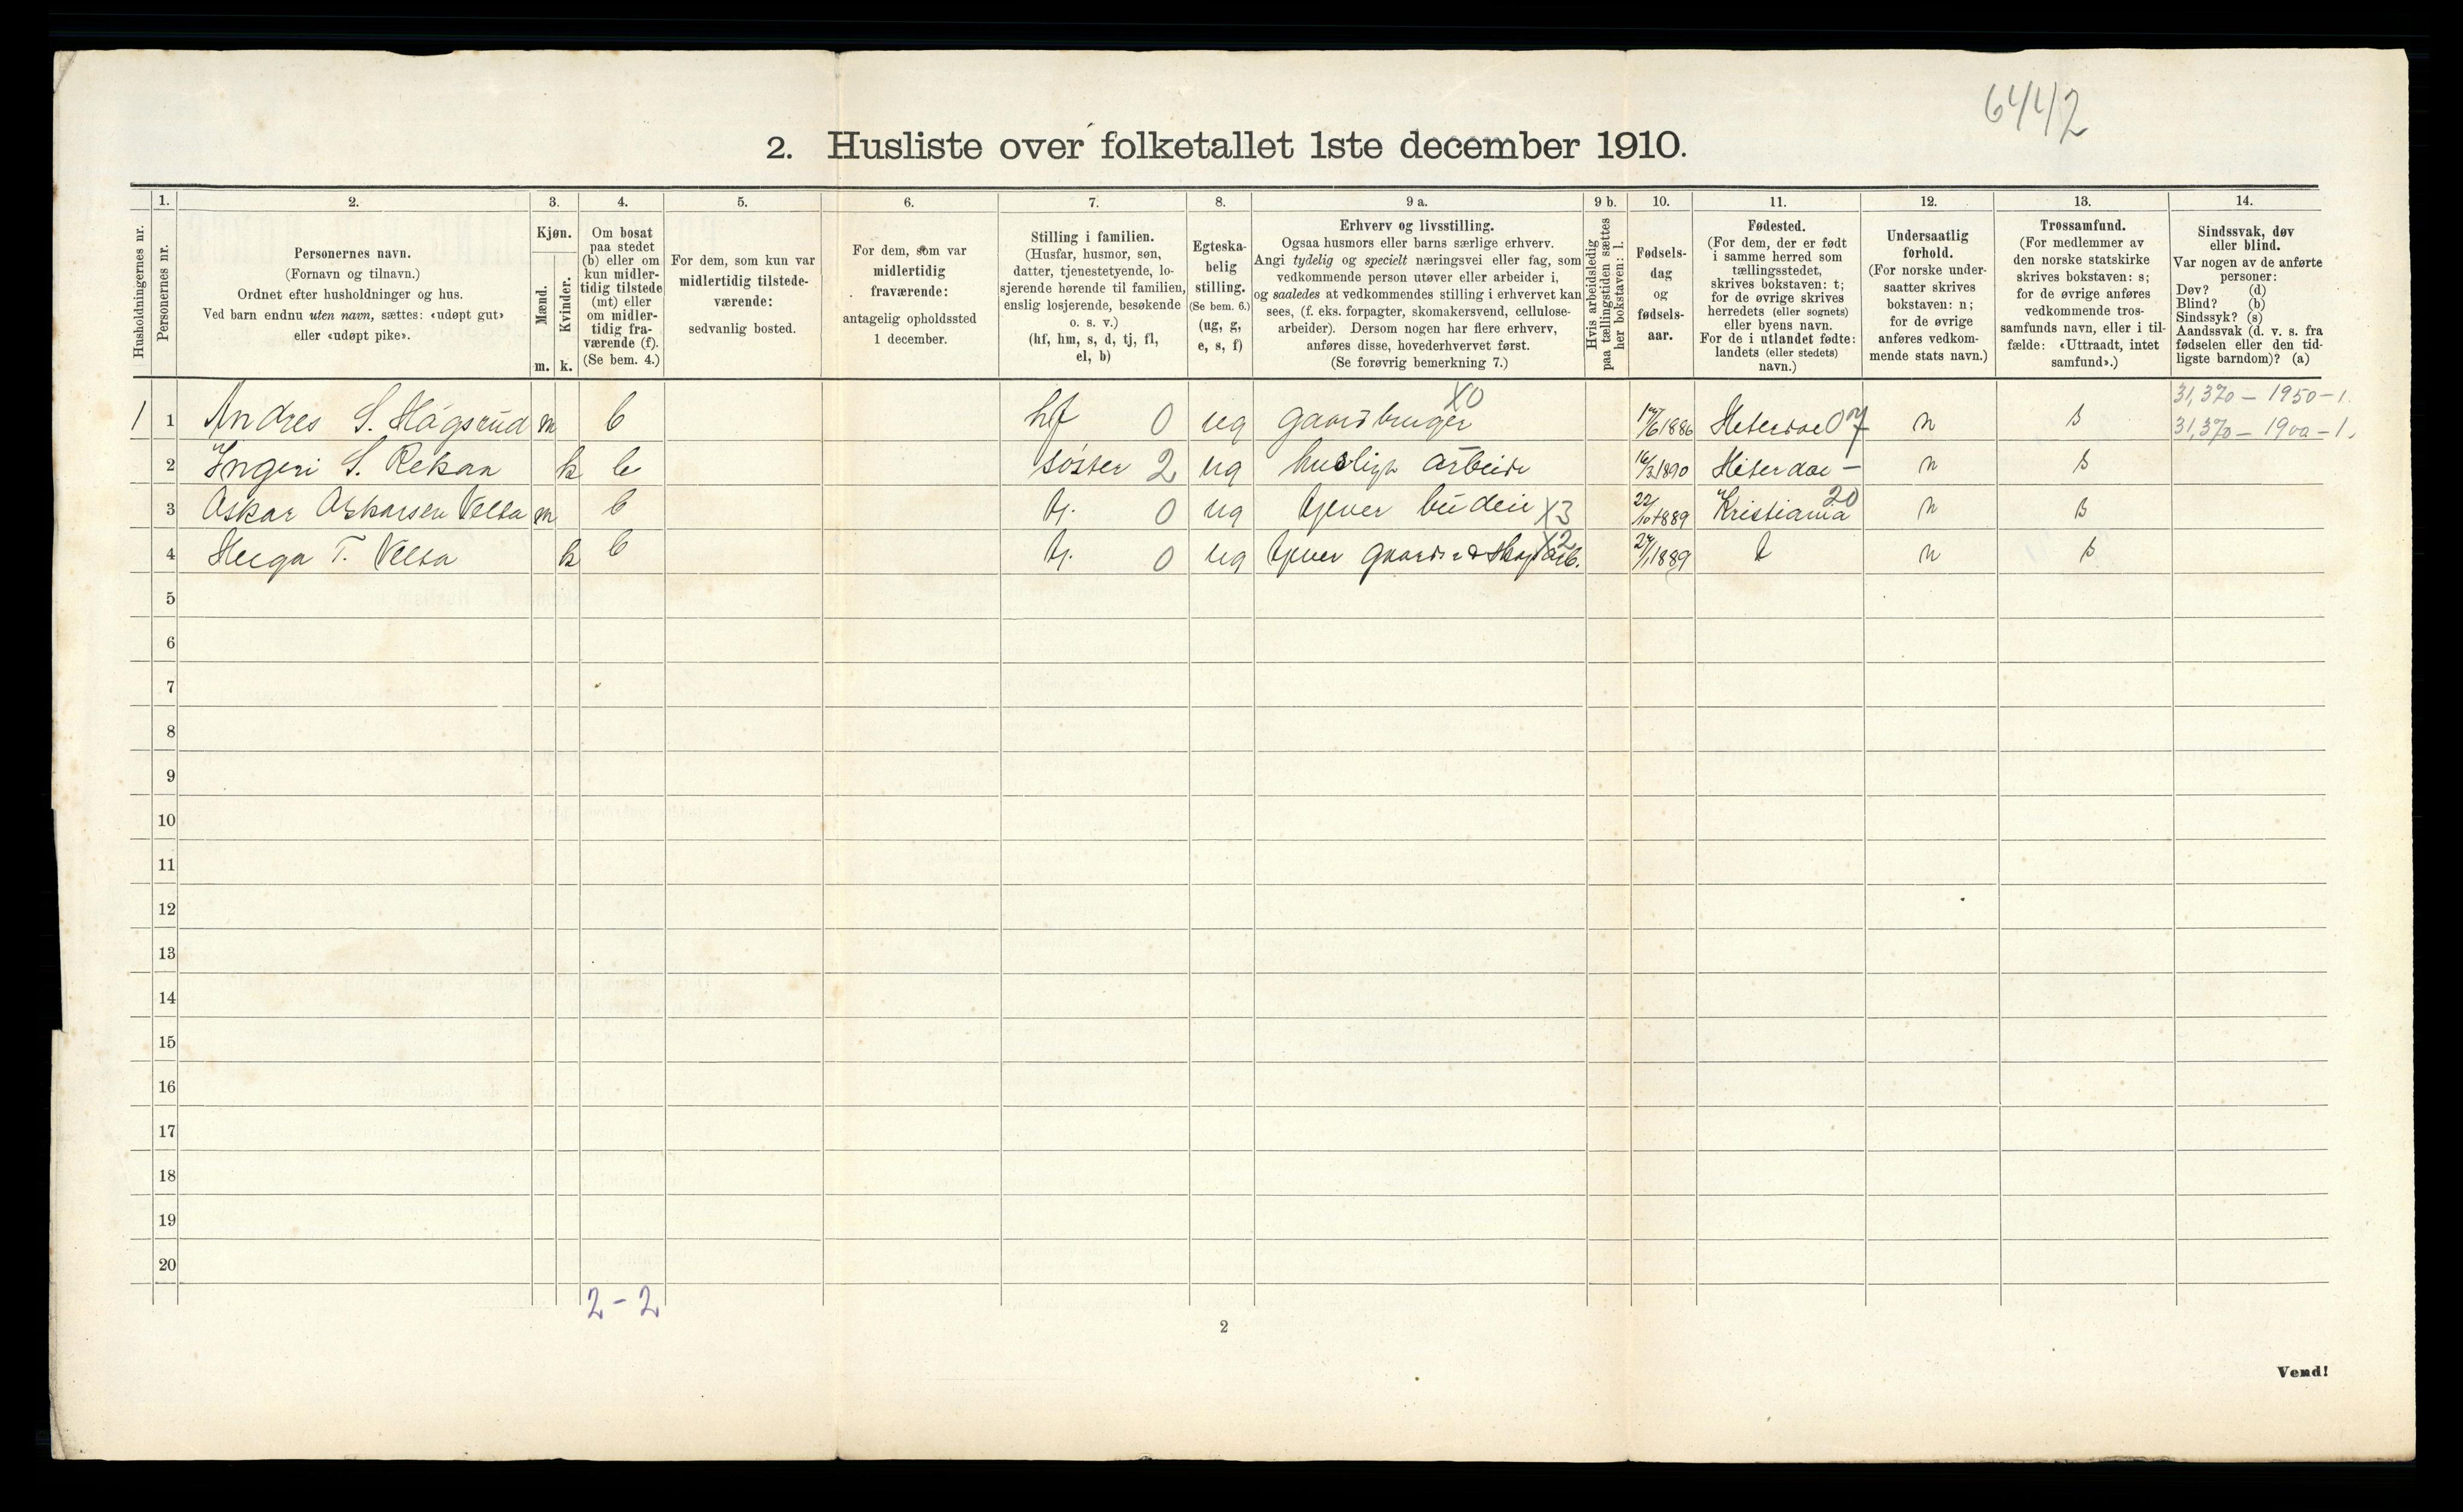 6442
2. Husliste over folketallet 1ste december 1910.
Husholdningernes nr.
1.
Personernes nr.
2.
Personernes navn.
(Fornavn og tilnavn.)
Ordnet efter husholdninger og hus.
Ved barn endnu uten navn, sættes: «udøpt gut»
eller «udøpt pike».
3.
Kjøn.
Mænd.
Kvinder.
m. k.
4.
Om bosat
paa stedet
(b) eller om
kun midler-
tidig tilstede
(mt) eller
om midler-
tidig fra-
værende (f).
(Se bem. 4.)
5.
For dem, som kun var
midlertidig tilstede-
værende:
sedvanlig bosted.
6.
For dem, som var
midlertidig
fraværende:
antagelig opholdssted
1 december.
7.
Stilling i familien.
(Husfar, husmor, søn,
datter, tjenestetyende, lo-
sjerende hørende til familien,
enslig losjerende, besøkende
o. s. v.)
(hf, hm, s, d, tj, fl,
el, b)
8.
Egteska-
belig
stilling.
(Se bem. 6.)
(ug, g,
e, s, f)
9 a.
Erhverv og livsstilling.
Ogsaa husmors eller barns særlige erhverv.
Angi tydelig og specielt næringsvei eller fag, som
vedkommende person utøver eller arbeider i,
og saaledes at vedkommendes stilling i erhvervet kan
sees, (f. eks. forpagter, skomakersvend, cellulose-
arbeider). Dersom nogen har flere erhverv,
anføres disse, hovederhvervet først.
(Se forøvrig bemerkning 7.)
9 b.
Hvis arbeidsledig
paa tællingstiden sættes
her bokstaven: l.
10.
Fødsels-
dag
og
fødsels-
aar.
11.
Fødested.
(For dem, der er født
i samme herred som
tællingsstedet,
skrives bokstaven: t;
for de øvrige skrives
herredets (eller sognets)
eller byens navn.
For de i utlandet fødte:
landets (eller stedets)
navn.)
12.
Undersaatlig
forhold.
(For norske under-
saatter skrives
bokstaven: n;
for de øvrige
anføres vedkom-
mende stats navn.)
13.
Trossamfund.
(For medlemmer av
den norske statskirke
skrives bokstaven: s;
for de øvrige anføres
vedkommende tros-
samfunds navn, eller i til-
fælde: «Uttraadt, intet
samfund».)
14.
Sindssvak, døv
eller blind.
Var nogen av de anførte
personer:
Døv? (d)
Blind? (b)
Sindssyk? (s)
Aandssvak (d. v. s. fra
fødselen eller den tid-
ligste barndom)? (a)
31,370 – 1950 – 1.
1 1 Andres S. Hågsrud m b hf 0 ug gaardbruger X0 17/6 1886 Heterdoel 07 n s 31,370 – 1900 – 1.
2 Ingeri S. Rekaa k b søster 2 ug husligt arbeide 16/3 1890 Hiterdal – n s
3 Askar Askarsen Velta m b tj. 0 ug tjener budeie X3 22/10 1889 Kristiania 20 n s
4 Helga T. Velta k b tj. 0 ug tjener gaards & skogsarb. X2 24/1 1889 t n s
5
6
7
8
9
10
11
12
13
14
15
16
17
18
19
20
2 – 2
2
Vend!